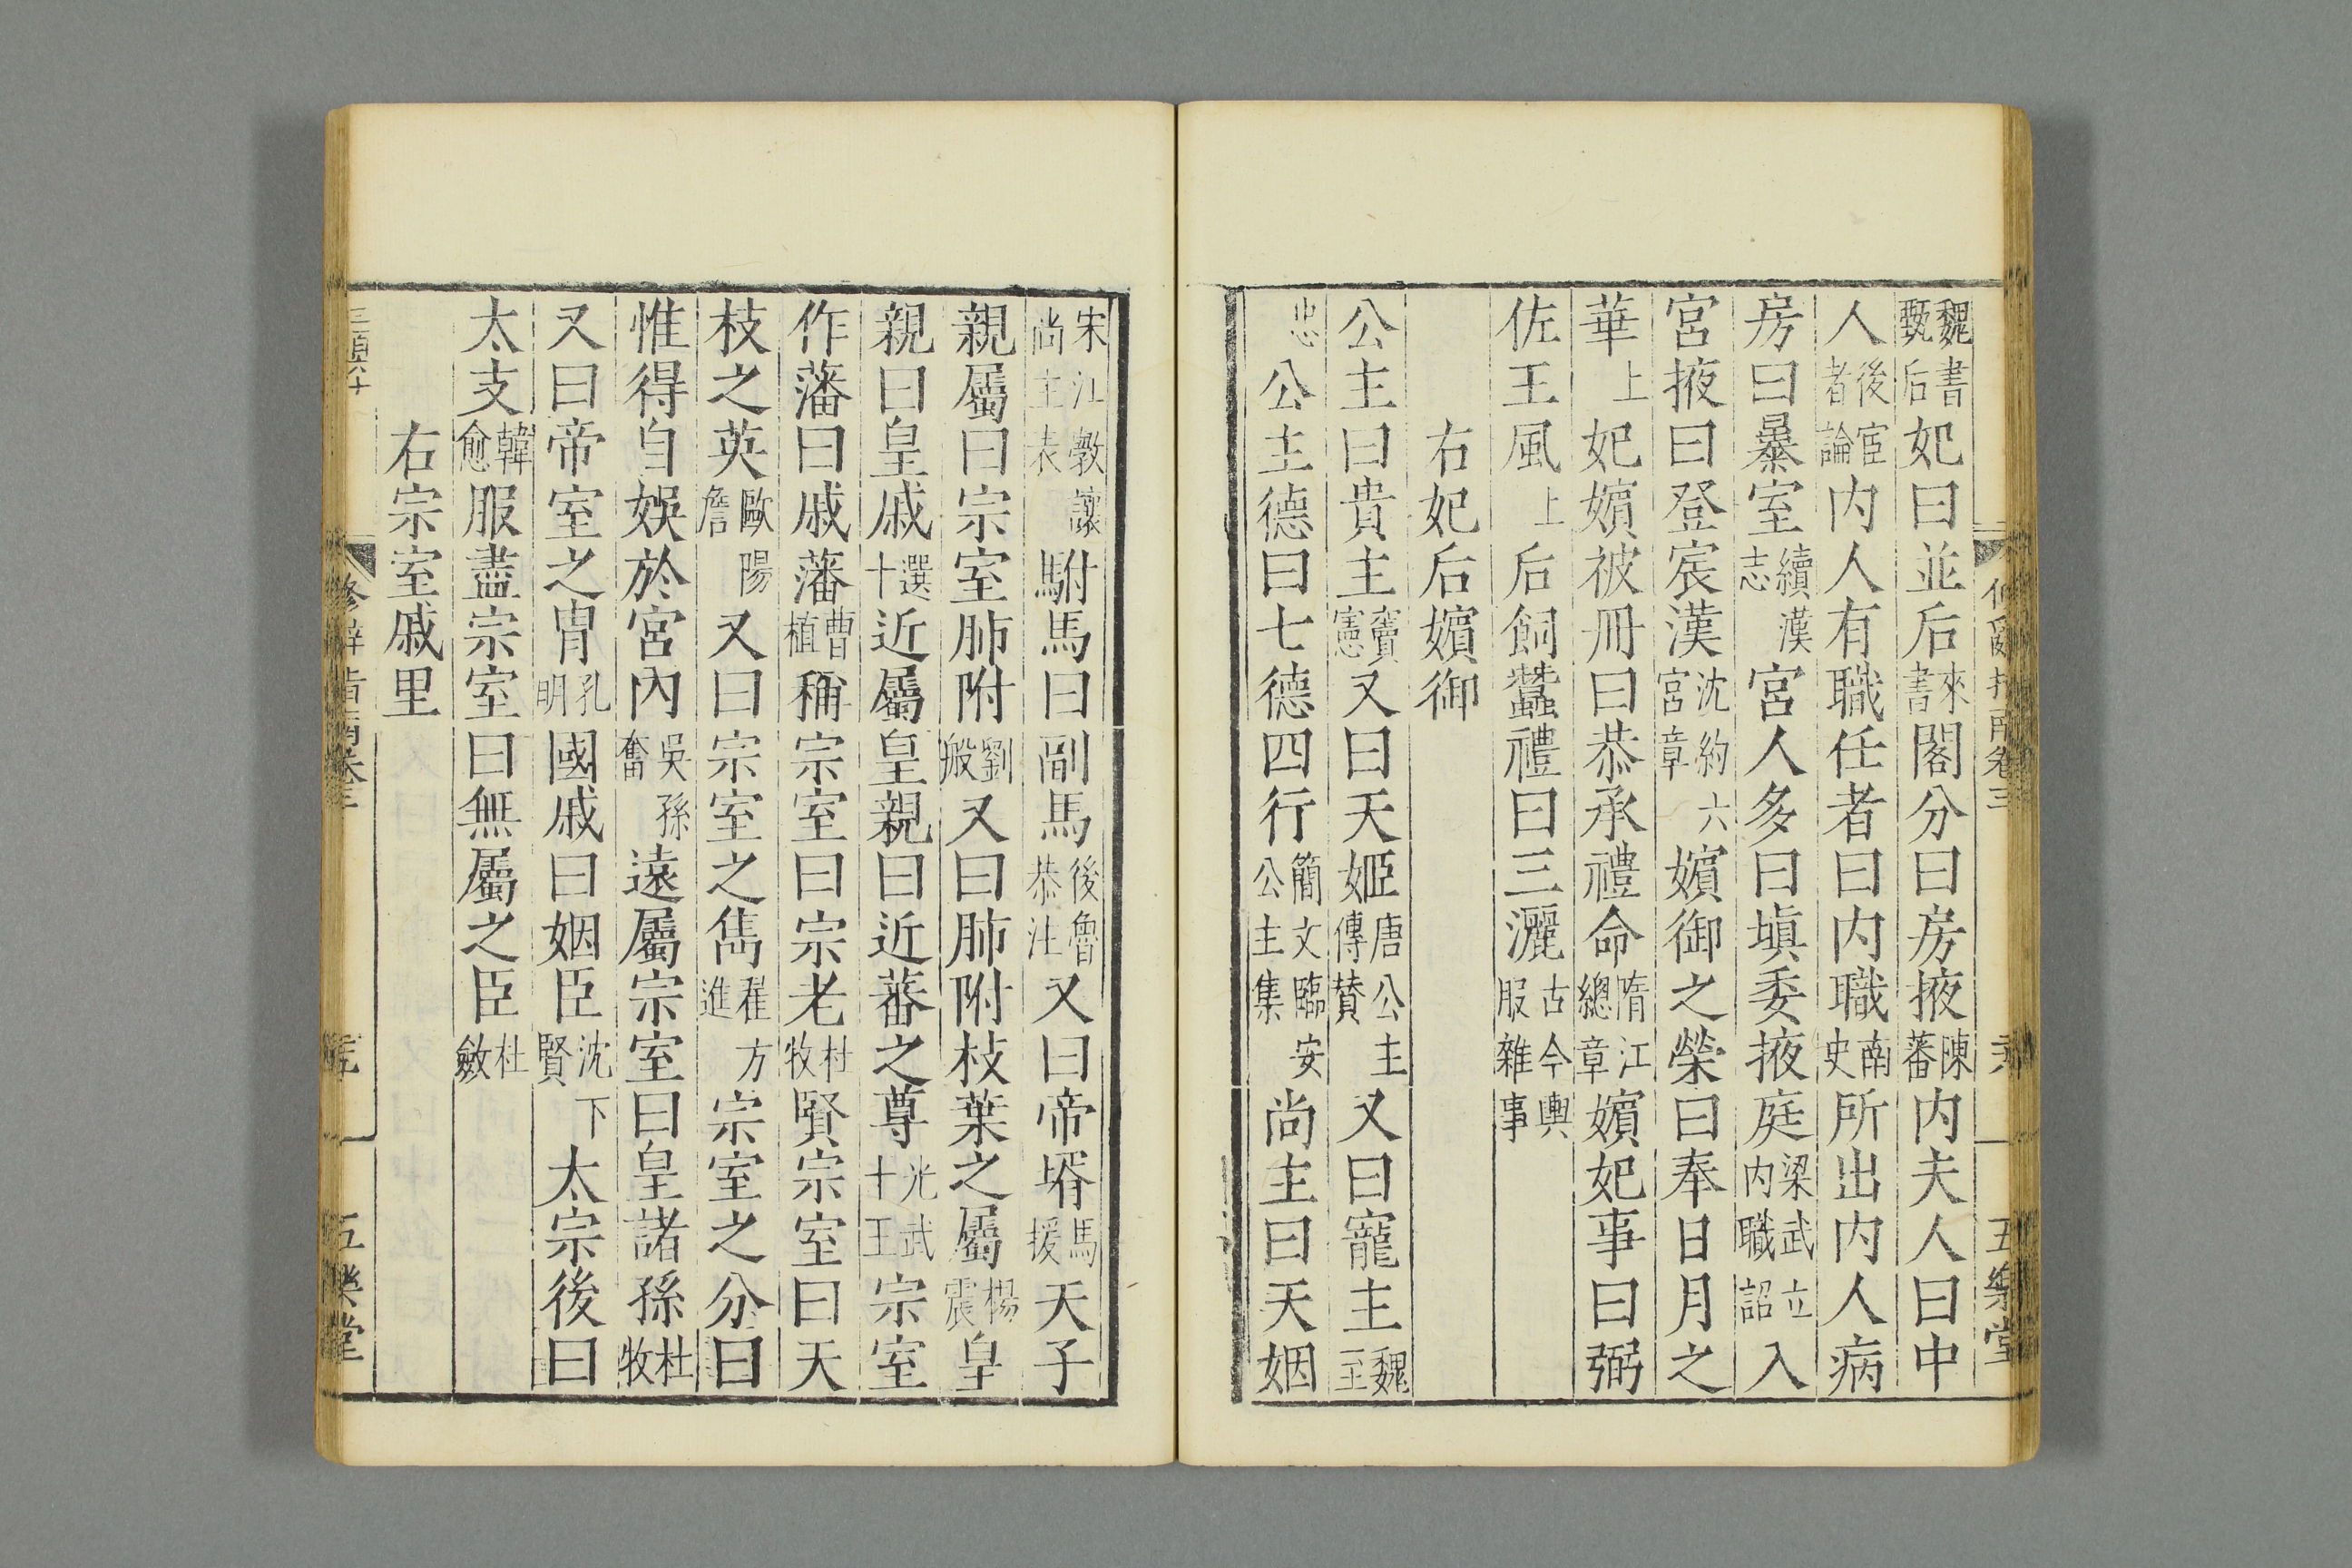 魏書甄后妃曰並后來書閣分曰房掖陳蕃内夫人曰中
人後宦者論内人有職任者曰内職南史所出内人病
房曰暴室續漢志宮人多曰塡委掖庭梁武立内職詔入
宮掖曰登宸漢沈約宮章六嬪御之榮曰奉日月之
華上妃嬪被冊曰恭承禮命隋江總章嬪妃事曰弼
佐王風上后飼蠶禮曰三灑古今輿服雜事
右妃后嬪御
公主曰貴主竇憲又曰天姬唐公主傳賛又曰寵主魏
忠公主德曰七德四行簡文臨安公主集尚主曰天姻
宋江斆讓尚主表駙馬曰副馬後魯恭注又曰帝壻馬援天子
親屬曰宗室肺附劉般又曰肺附枝葉之屬楊震皇
親曰皇戚選十近屬皇親曰近蕃之尊光武十王宗室
作藩曰戚藩曹植稱宗室曰宗老杜牧賢宗室曰天
枝之英歐陽詹又曰宗室之雋翟方進宗室之分曰
惟得自娛於宮内吳孫奮遠屬宗室曰皇諸孫杜牧
又曰帝室之冑孔明國戚曰姻臣沈下賢太宗後曰
太支韓愈服盡宗室曰無屬之臣杜斂
右宗室戚里
修辭指南卷三
五樂堂